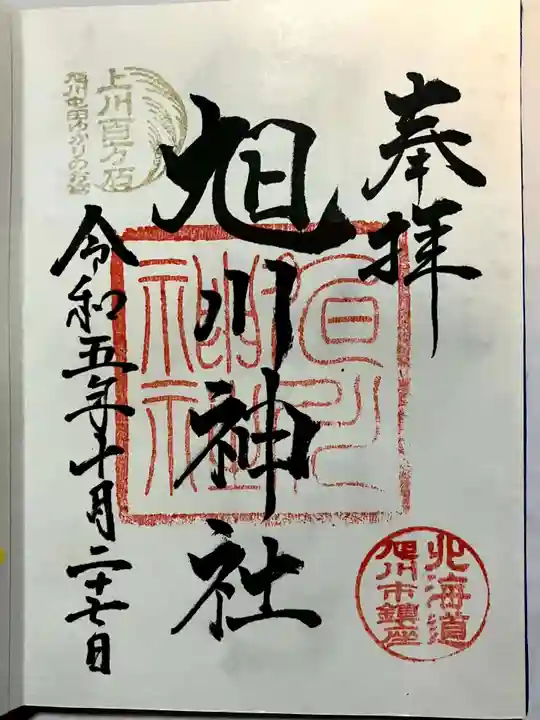 奉拝
旭川神社
上川百万石
旭川屯田ゆかりのお社
令和五年十月二十七日
北海道
旭川市鎮座